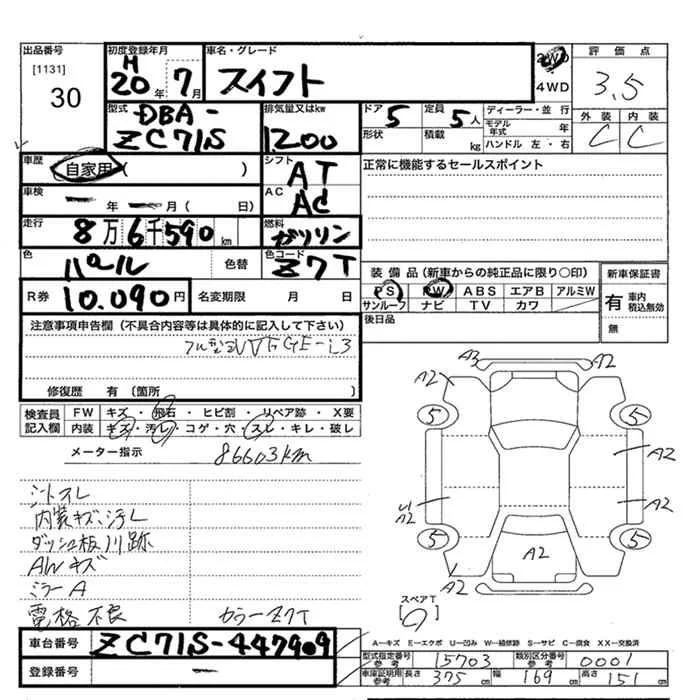 出品番号 初度登録年月 車名・グレード 2WD 4WD 評価点
[1131] 30 H20年 7月 スイフト 3.5
型式 DBA-ZC71S 排気量又はkw 1200 ドア 5 定員 5人 ディーラー・並行 外装 C 内装 C
形状 積載 kg モデル年式 年 ハンドル 左・右
車歴 自家用( ) シフト AT 正常に機能するセールスポイント
車検 ー年 ー月( 日) AC AC
走行 8万6千590km 燃料 ガソリン
色 パール 色替 色コード Z7T 装備品(新車からの純正品に限り○印) 新車保証書
R券 10.090円 名変期限 月 日 PS PW ABS エアB アルミW 有 車内 税込無効
サンルーフ ナビ TV カワ 無
注意事項申告欄(不具合内容等は具体的に記入して下さい) 後日品
修復歴 有(箇所 )
検査員記入欄 FW キズ・飛石・ヒビ割・リペア跡・X要
内装 キズ・汚レ・コゲ・穴・スレ・キレ・破レ
メーター指示 86603km
A3 A2
A2
5 5
A2
A2 A2
5 5
A2
A2
シートスレ
内装キズ、汚レ
ダッシュ板川跡
AWキズ
ミラーA
電格不良 カラーZ7T
スペアT
車台番号 ZC71S-447909
A−キズ E−エクボ U−凹み W−補修跡 S−サビ C−腐食 XX−交換済
型式指定番号 参考 15703 類別区分番号 参考 0001
登録番号 ー 車庫証明用 参考 長さ 375cm 幅 169cm 高さ 151cm